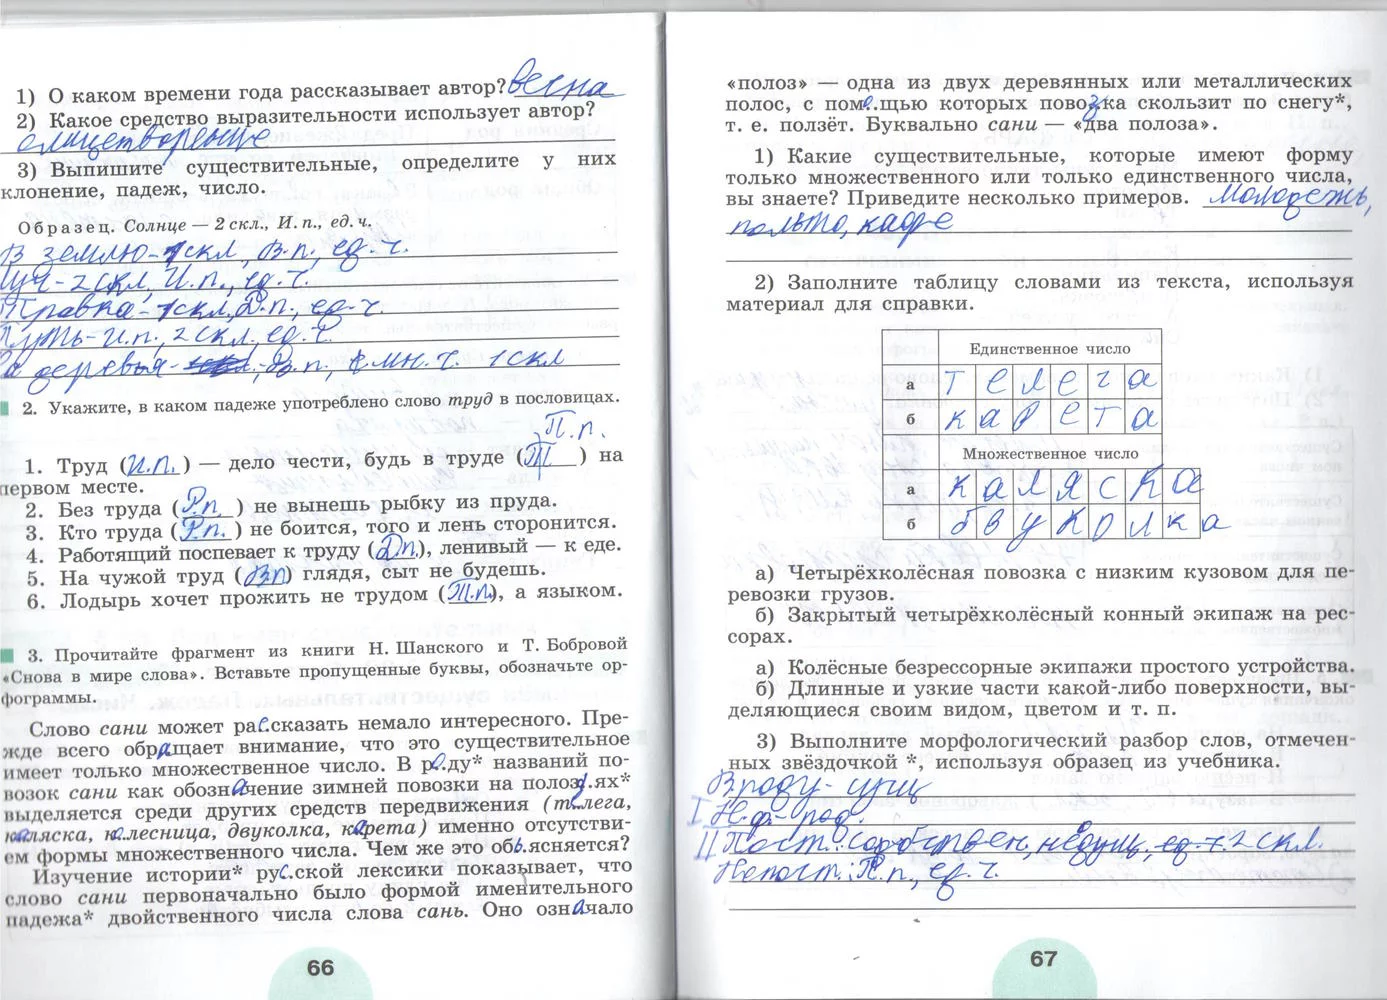 1) О каком времени года рассказывает автор? весна
2) Какое средство выразительности использует автор?
олицетворение
3) Выпишите существительные, определите у них
клонение, падеж, число.
Образец. Солнце — 2 скл., И. п., ед. ч.
В землю - 1 скл., В.п., ед. ч.
луч - 2 скл, И.п., ед. ч.
Травка - 1 скл, Д.п., ед. ч.
Путь - И.п., 2 скл, ед. ч.
На деревья - В.п., мн. ч. 1 скл
2. Укажите, в каком падеже употреблено слово труд в пословицах.
П.п.
1. Труд (И.п.) — дело чести, будь в труде ( ) на
первом месте.
2. Без труда (Р.п) не вынешь рыбку из пруда.
3. Кто труда (Р.п.) не боится, того и лень сторонится.
4. Работящий поспевает к труду (Дп.), ленивый — к еде.
5. На чужой труд (Вп) глядя, сыт не будешь.
6. Лодырь хочет прожить не трудом (Т.п.), а языком.
3. Прочитайте фрагмент из книги Н. Шанского и Т. Бобровой
«Снова в мире слова». Вставьте пропущенные буквы, обозначьте ор-
фограммы.
Слово сани может рассказать немало интересного. Пре-
жде всего обращает внимание, что это существительное
имеет только множественное число. В роду* названий по-
возок сани как обозначение зимней повозки на полозьях*
выделяется среди других средств передвижения (телега,
коляска, колесница, двуколка, карета) именно отсутстви-
ем формы множественного числа. Чем же это объясняется?
Изучение истории* русской лексики показывает, что
слово сани первоначально было формой именительного
падежа* двойственного числа слова сань. Оно означало
66
«полоз» — одна из двух деревянных или металлических
полос, с помощью которых повозка скользит по снегу*,
т. е. ползёт. Буквально сани — «два полоза».
1) Какие существительные, которые имеют форму
только множественного или только единственного числа,
вы знаете? Приведите несколько примеров. Молодежь,
польто, кафе
2) Заполните таблицу словами из текста, используя
материал для справки.
Единственное число
а телега
б карета
Множественное число
а каляска
б двуколка
а) Четырёхколёсная повозка с низким кузовом для пе-
ревозки грузов.
б) Закрытый четырёхколёсный конный экипаж на рес-
сорах.
а) Колёсные безрессорные экипажи простого устройства.
б) Длинные и узкие части какой-либо поверхности, вы-
деляющиеся своим видом, цветом и т. п.
3) Выполните морфологический разбор слов, отмечен-
ных звёздочкой *, используя образец из учебника.
В роду - сущ
I Н.ф - род.
II Пост.: собствен, неодуш, ед. ч. 2 скл.
Непост: П.п, ед. ч.
67